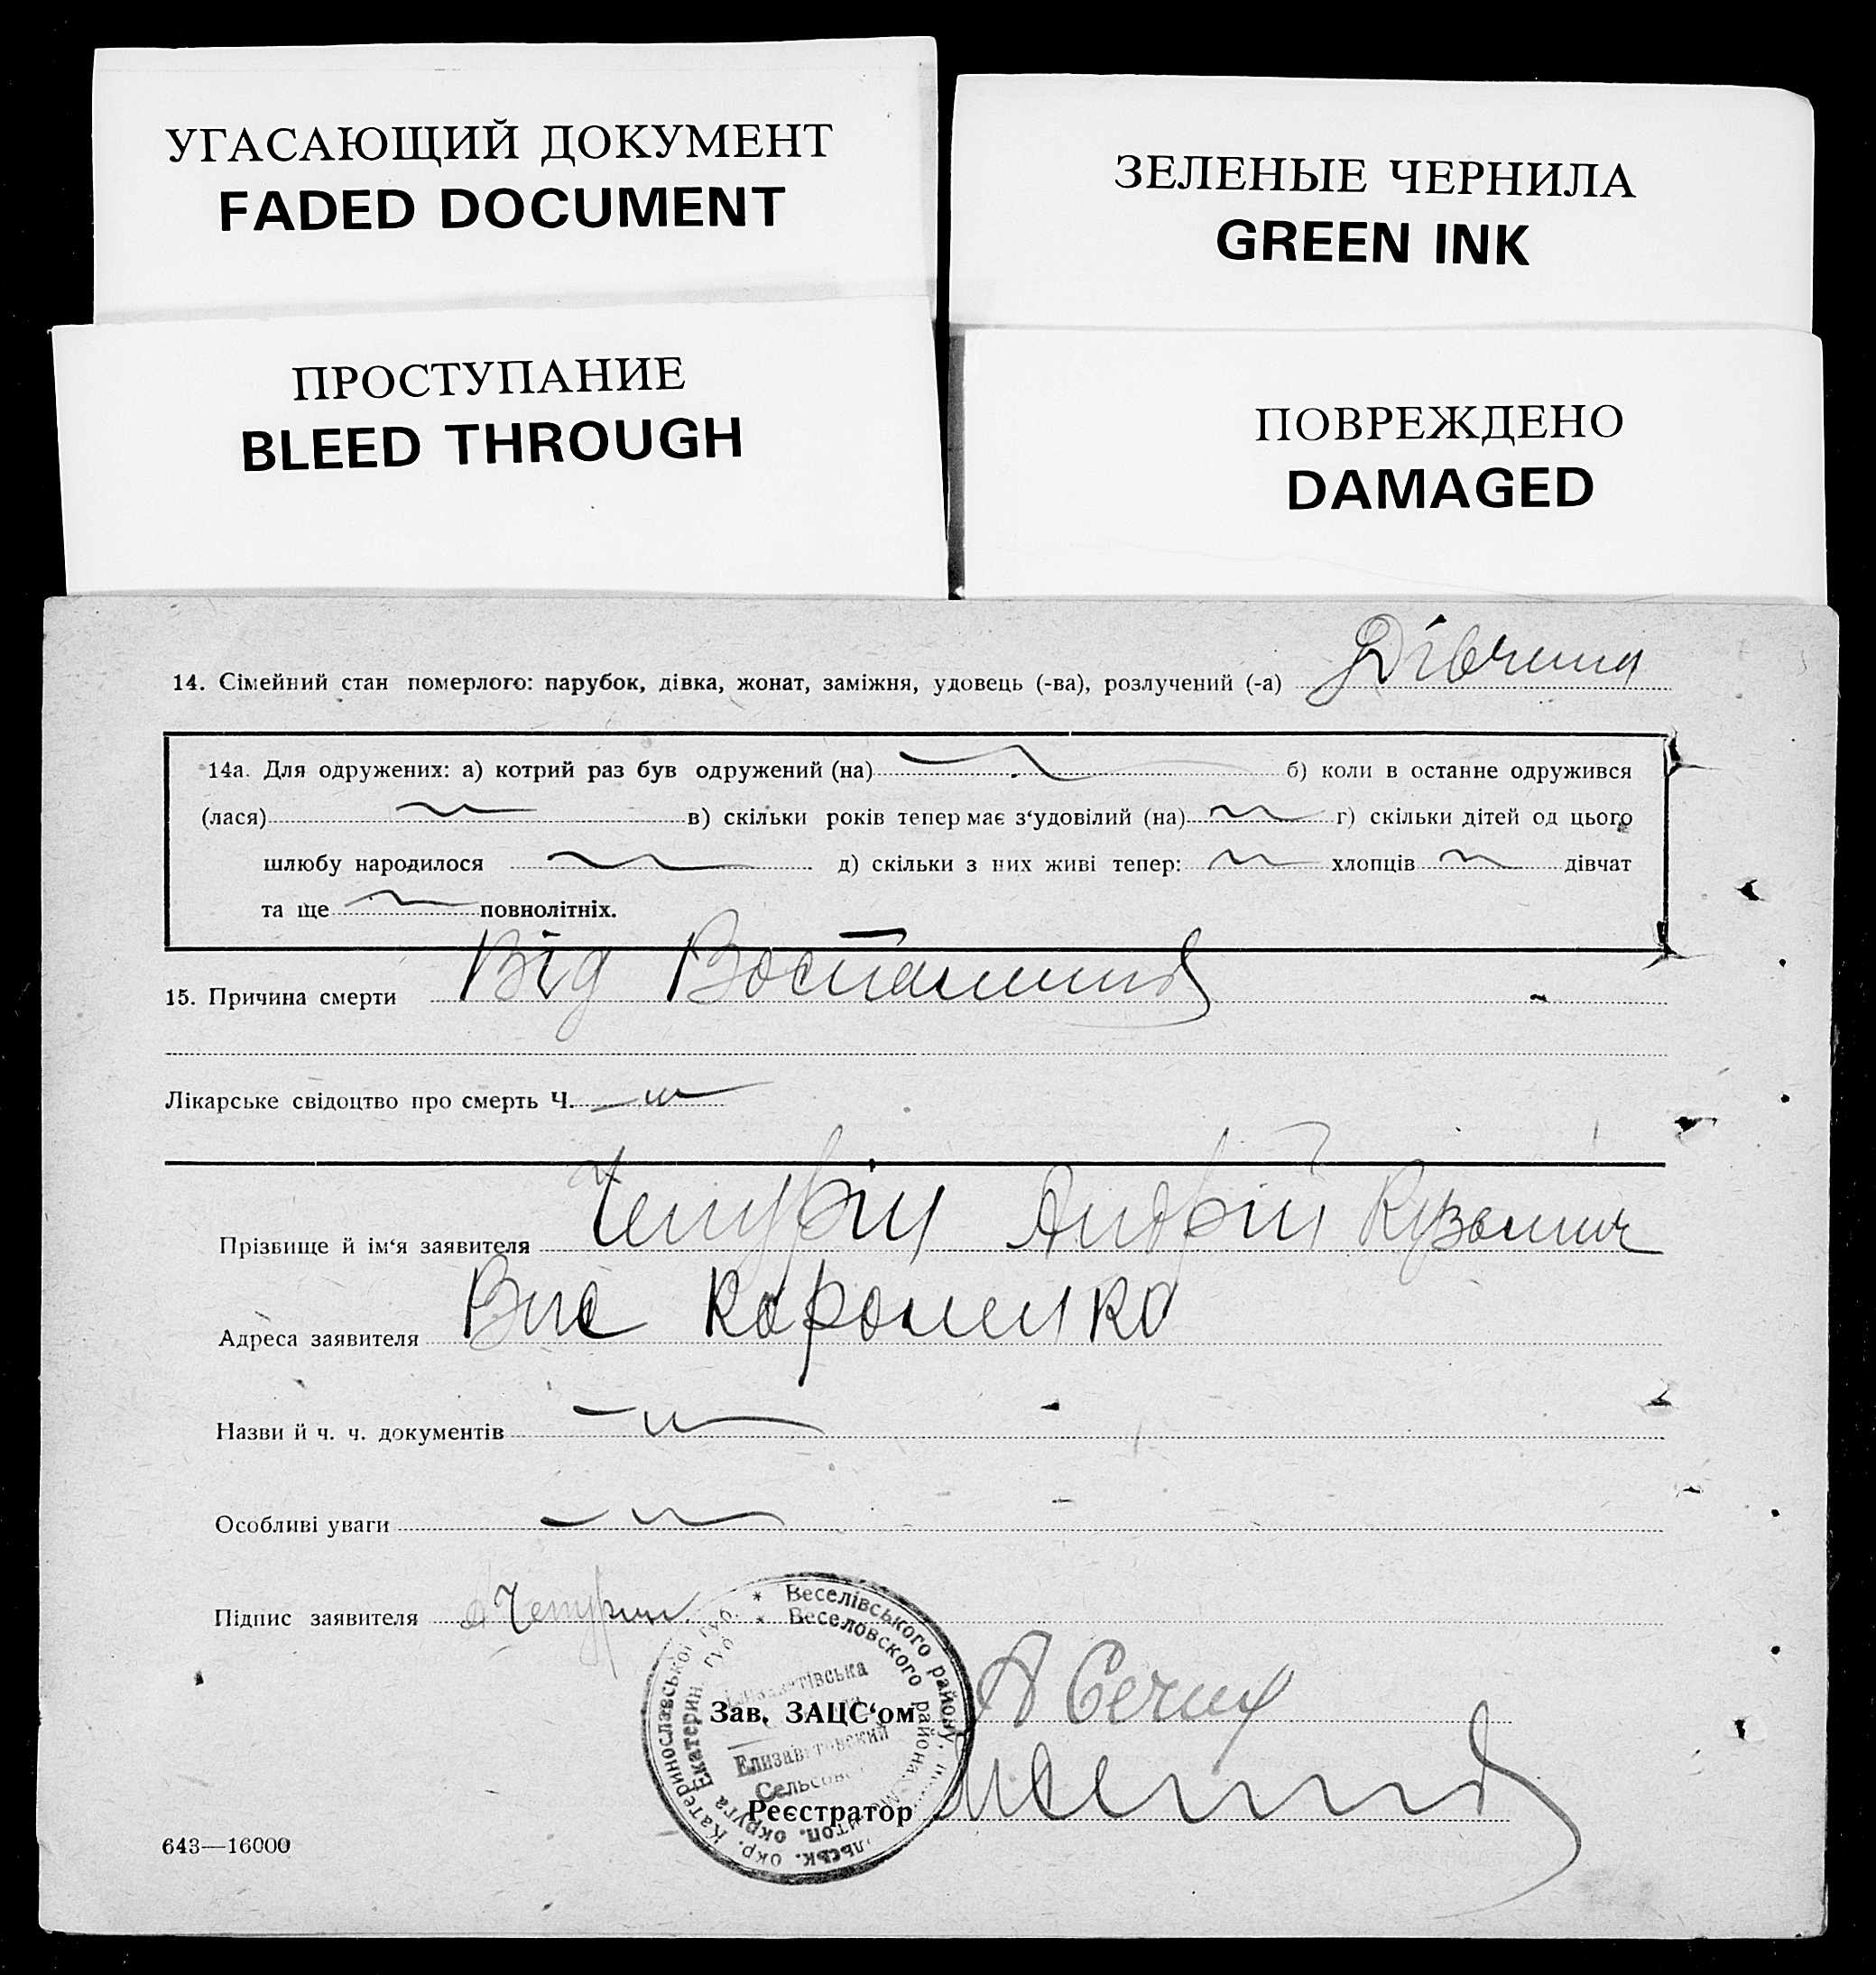 УГАСАЮЩИЙ ДОКУМЕНТ
FADED DOCUMENT
ЗЕЛЕНЫЕ ЧЕРНИЛА
GREEN INK
ПРОСТУПАНИЕ
BLEED THROUGH
ПОВРЕЖДЕНО
DAMAGED
14. Сімейний стан померлого: парубок, дівка, жонат, заміжня, удовець (-ва), розлучений (-а) Дівчина
14а. Для одружених: а) котрий раз був одружений (на) б) коли в останнє одружився
(лася) в) скільки років тепер має з‘удовілий (на) г) скільки дітей од цього
шлюбу народилося д) скільки з них живі тепер: хлопців дівчат
та ще повнолітніх.
15. Причина смерти Від
Лікарське свідоцтво про смерть Ч.
Прізвище й ім‘я заявителя Андрій Кузьмич
Адреса заявителя
Назви й ч. ч. документів
Особливі уваги
Підпис заявителя
* Веселівського району, окр. Катеринославської губ.
* Веселовского района, округа Екатерин. губ.
Елизаветовский
Сельсов
Зав. ЗАЦС‘ом
Реєстратор
643—16000